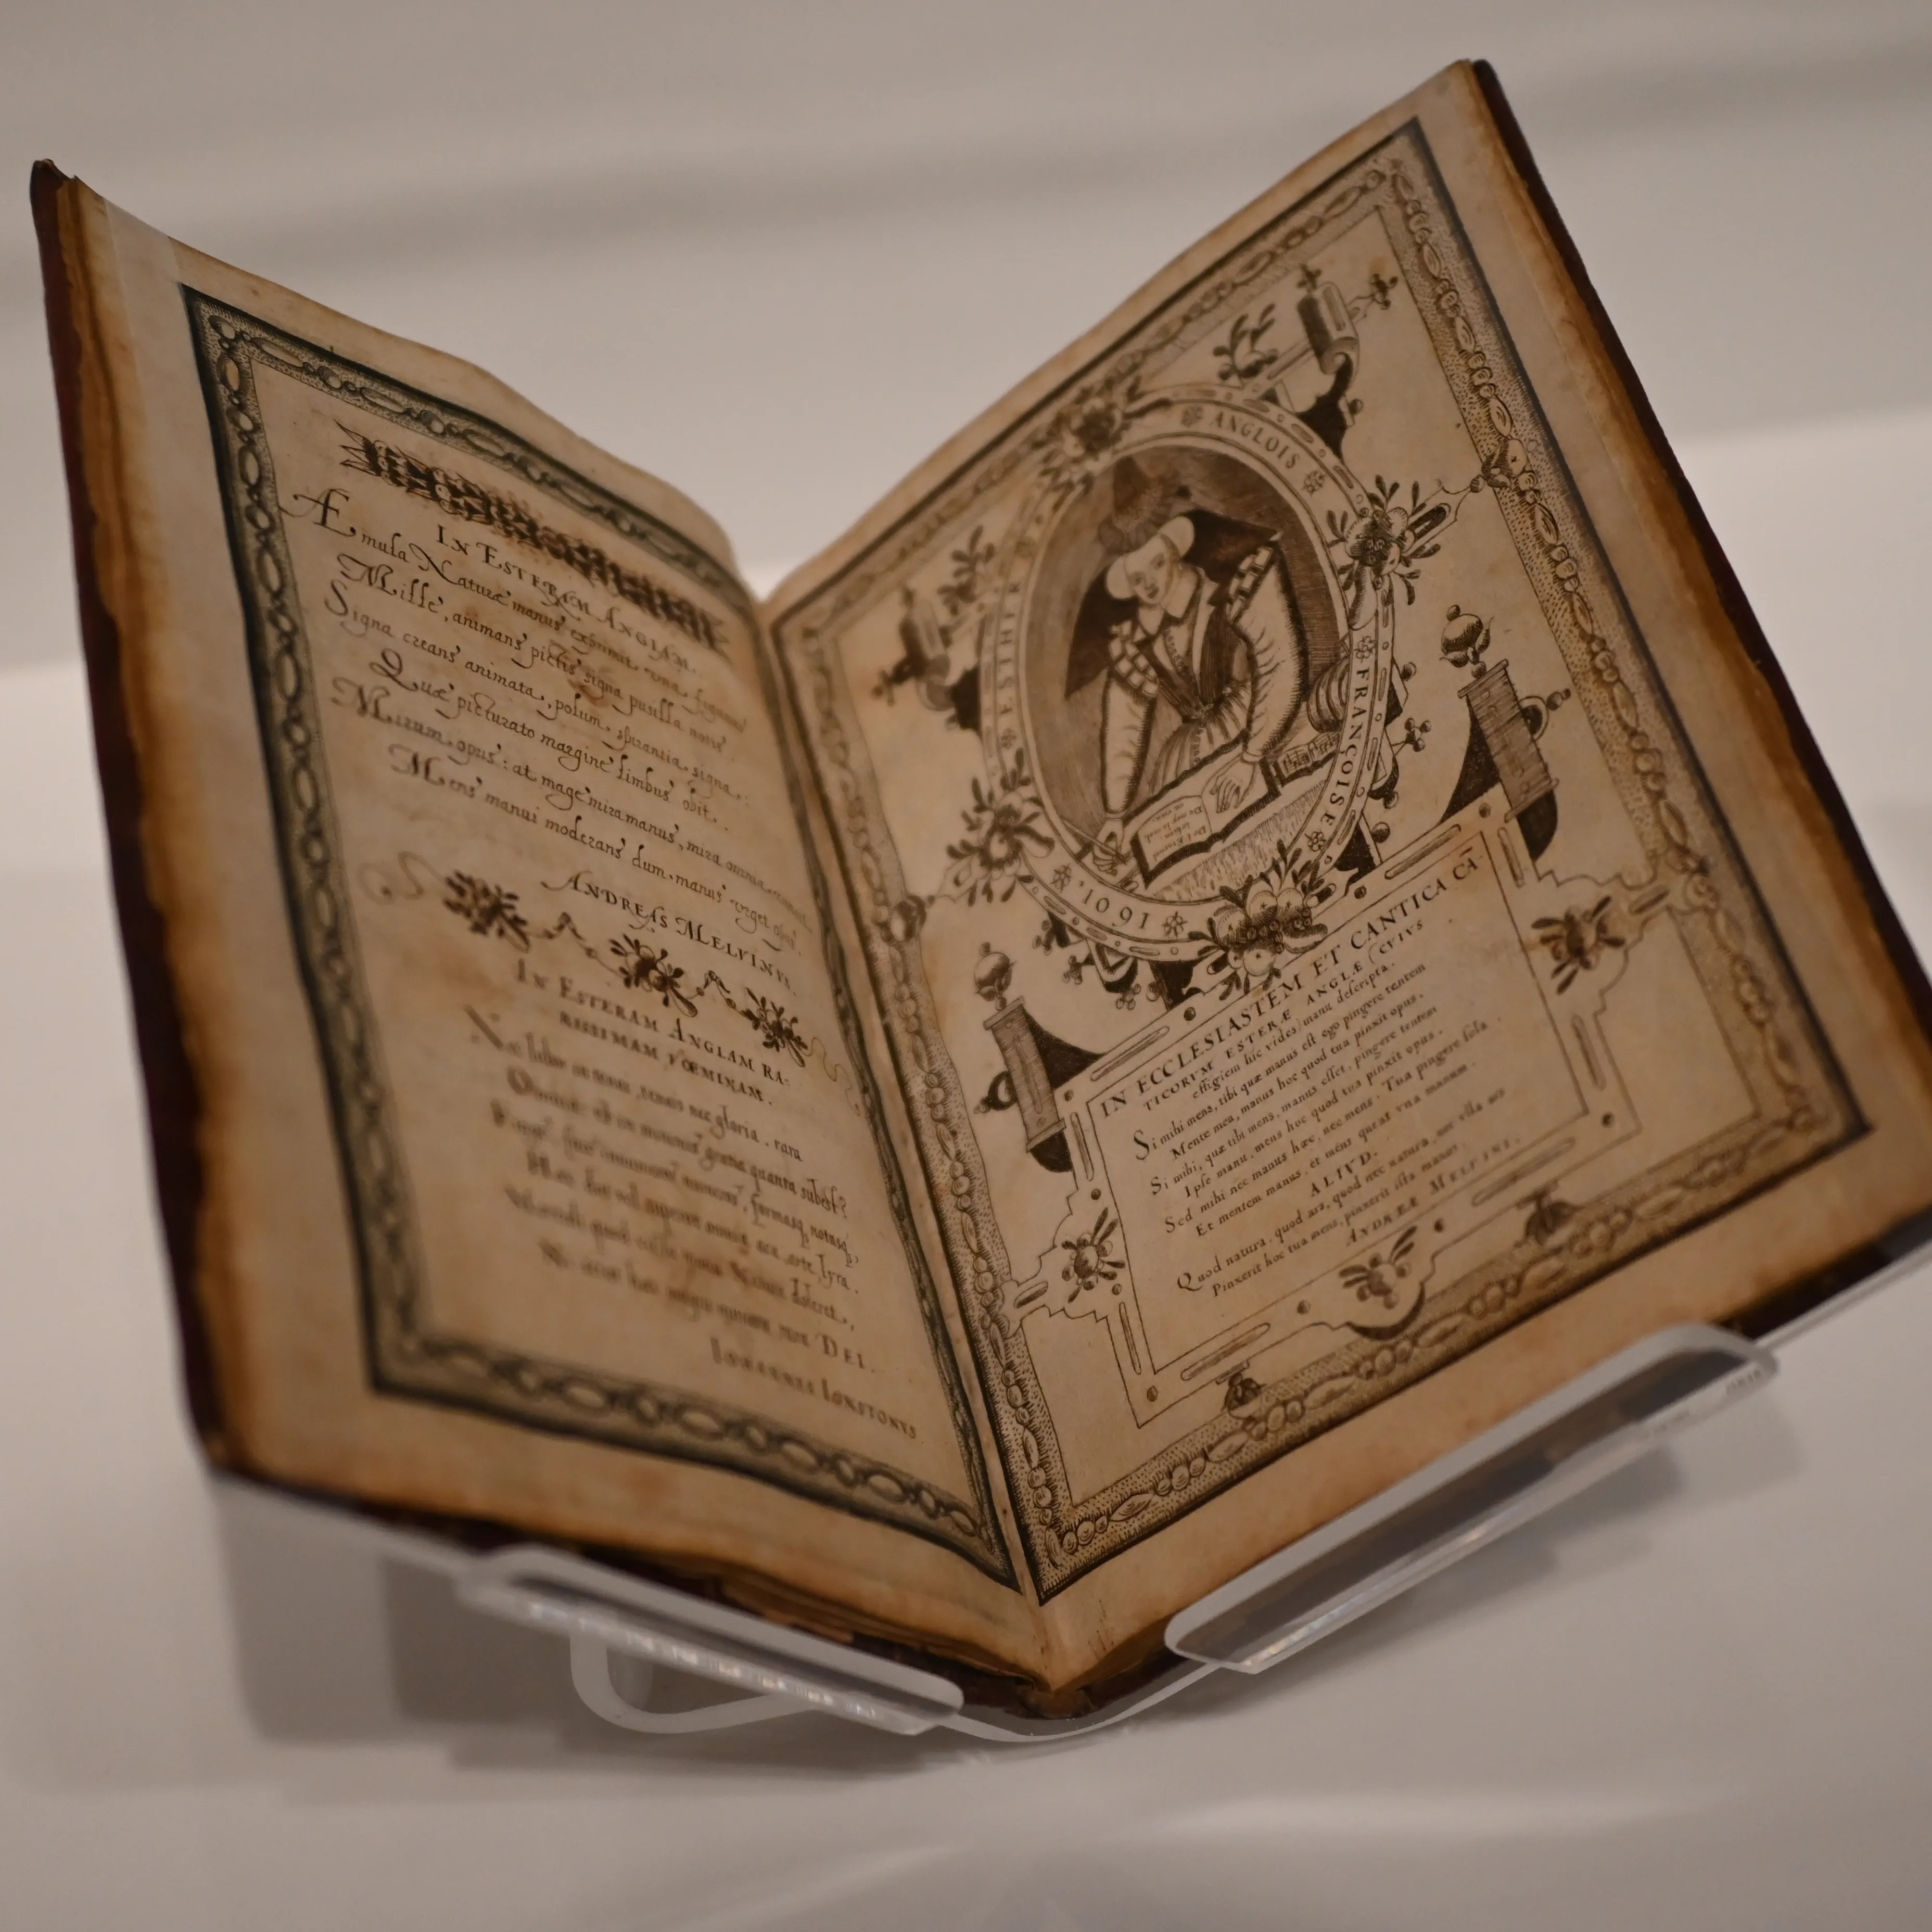 IN ESTERAM ANGLAM.
Æmula Naturæ manus exprimit una figuras
Mille, animans pictis signa pusilla notis
Signa creans animata, polum, spirantia signa,
Quæ picturato margine limbus obit.
Mirum opus: at mage mira manus, mira omnia vincit
Mens manui moderans dum manus urget opus.
ANDREAS MELVINVS.
IN ESTERAM ANGLAM RA-
RISSIMAM FŒMINAM.
labor in tenui, tenuis nec gloria. rara
gratia quanta subest?
formasq notasq,
arte, lyra.
DEI.
IOHANNES IONSTONVS
ESTHER ANGLOIS FRANÇOISE
1601
IN ECCLESIASTEM ET CANTICA CĀ-
TICORVM ESTERÆ ANGLÆ (CVIVS
effigiem hic vides) manu descripta.
Si mihi mens, tibi quæ manus est ego pingere tentem
Mente mea, manus hoc quod tua pinxit opus.
Si mihi, quæ tibi mens, manus esset, pingere tentem
Ipse manu, mens hoc quod tua pinxit opus.
Sed mihi nec manus hæc, nec mens. Tua pingere sola
Et mentem manus, et mens queat vna manum.
ALIVD.
Quod natura, quod ars, quod nec natura, nec vlla ars
Pinxerit hoc tua mens, pinxerit ista manus.
ANDREÆ MELVINI.